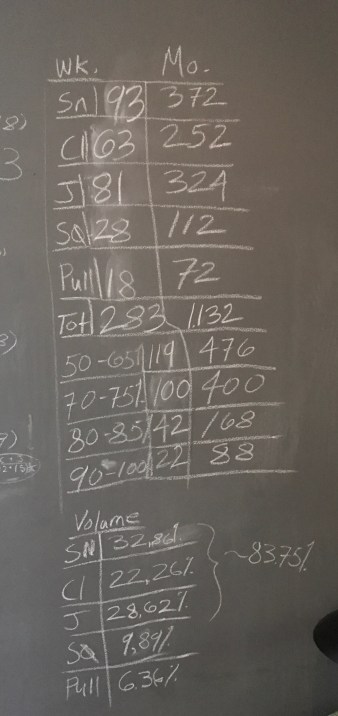 Wk. Mo.
Sn 93 372
Cl 63 252
J 81 324
SQ 28 112
Pull 18 72
Tot 283 1,132
50-65% 119 476
70-75% 100 400
80-85% 42 168
90-100% 22 88
Volume
SN 32,86%
Cl 22,26%
J 28,62% ~83.75%
SQ 9,89%
Pull 6.36%
8)
3
3)
7)